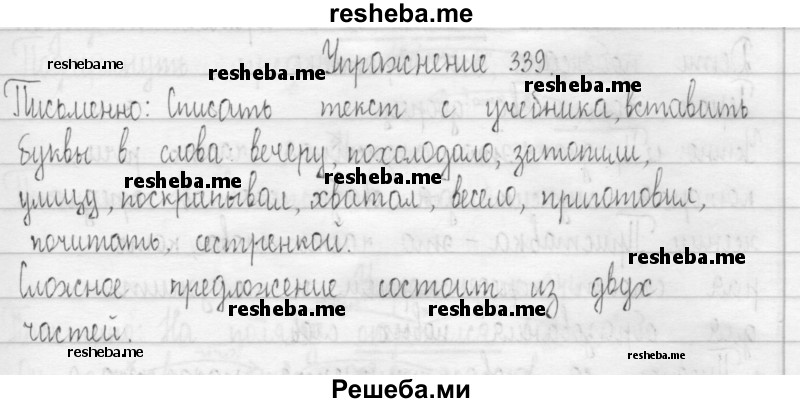 resheba.me
resheba.me
Упражнение 339.
resheba.me
resheba.me
Письменно: Списать текст с учебника, вставить
буквы в слова вечеру, похолодало, затопили,
resheba.me
resheba.me
улицу, поскрипывал, хватал, весело, приготовил,
почитать, сестренкой.
resheba.me
Сложное предложение состоит из двух
resheba.me
resheba.me
частей.
resheba.me
resheba.me
Решеба.ми